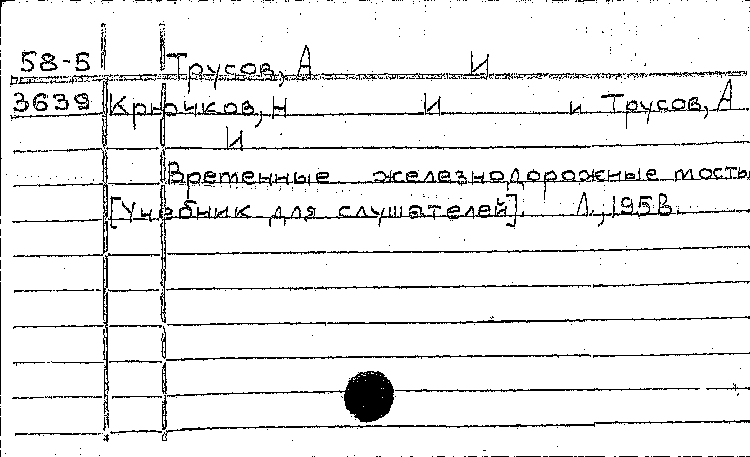 58-5 Трусов, А И
3639 Крючков, Н И и Трусов, А
И
Временные железнодорожные мосты
[Учебник для слушателей]. Л., 1958.